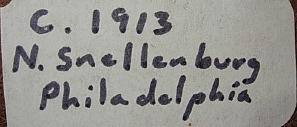 C. 1913
N. Snellenburg
Philadelphia